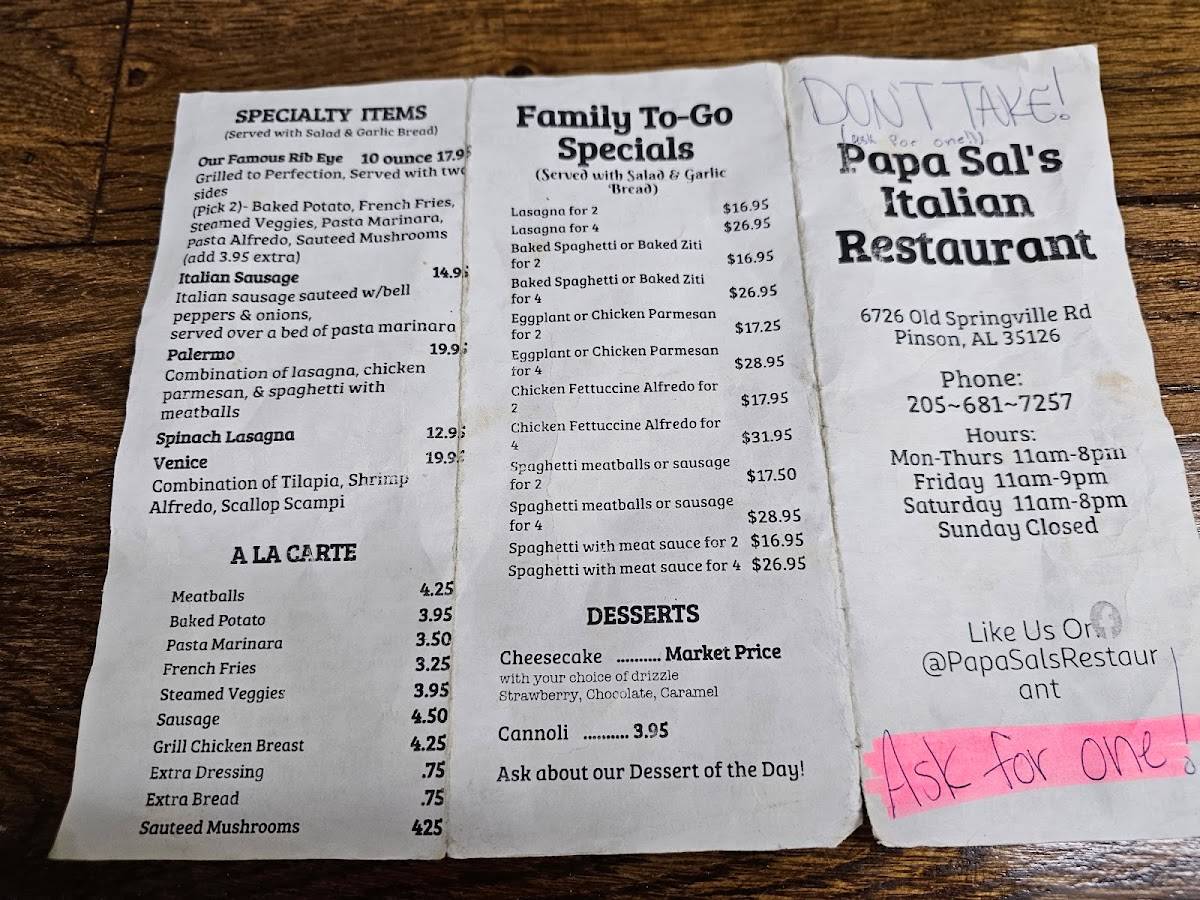 SPECIALTY ITEMS
(Served with Salad & Garlic Bread)
Our Famous Rib Eye 10 ounce 17.95
Grilled to Perfection, Served with two
sides
(Pick 2)- Baked Potato, French Fries,
Steamed Veggies, Pasta Marinara,
Pasta Alfredo, Sauteed Mushrooms
(add 3.95 extra)
Italian Sausage 14.95
Italian sausage sauteed w/bell
peppers & onions,
served over a bed of pasta marinara
Palermo 19.95
Combination of lasagna, chicken
parmesan, & spaghetti with
meatballs
Spinach Lasagna 12.95
Venice 19.95
Combination of Tilapia, Shrimp
Alfredo, Scallop Scampi
A LA CARTE
Meatballs 4.25
Baked Potato 3.95
Pasta Marinara 3.50
French Fries 3.25
Steamed Veggies 3.95
Sausage 4.50
Grill Chicken Breast 4.25
Extra Dressing .75
Extra Bread .75
Sauteed Mushrooms 425
Family To-Go
Specials
(Served with Salad & Garlic
Bread)
Lasagna for 2 $16.95
Lasagna for 4 $26.95
Baked Spaghetti or Baked Ziti
for 2 $16.95
Baked Spaghetti or Baked Ziti
for 4 $26.95
Eggplant or Chicken Parmesan
for 2 $17.25
Eggplant or Chicken Parmesan
for 4 $28.95
Chicken Fettuccine Alfredo for
2 $17.95
Chicken Fettuccine Alfredo for
4 $31.95
Spaghetti meatballs or sausage
for 2 $17.50
Spaghetti meatballs or sausage
for 4 $28.95
Spaghetti with meat sauce for 2 $16.95
Spaghetti with meat sauce for 4 $26.95
DESSERTS
Cheesecake .......... Market Price
with your choice of drizzle
Strawberry, Chocolate, Caramel
Cannoli .......... 3.95
Ask about our Dessert of the Day!
DON'T TAKE!
(ask for one!!)
Papa Sal's
Italian
Restaurant
6726 Old Springville Rd
Pinson, AL 35126
Phone:
205~681~7257
Hours:
Mon-Thurs 11am-8pm
Friday 11am-9pm
Saturday 11am-8pm
Sunday Closed
Like Us On
@PapaSalsRestaur
ant
Ask for one!